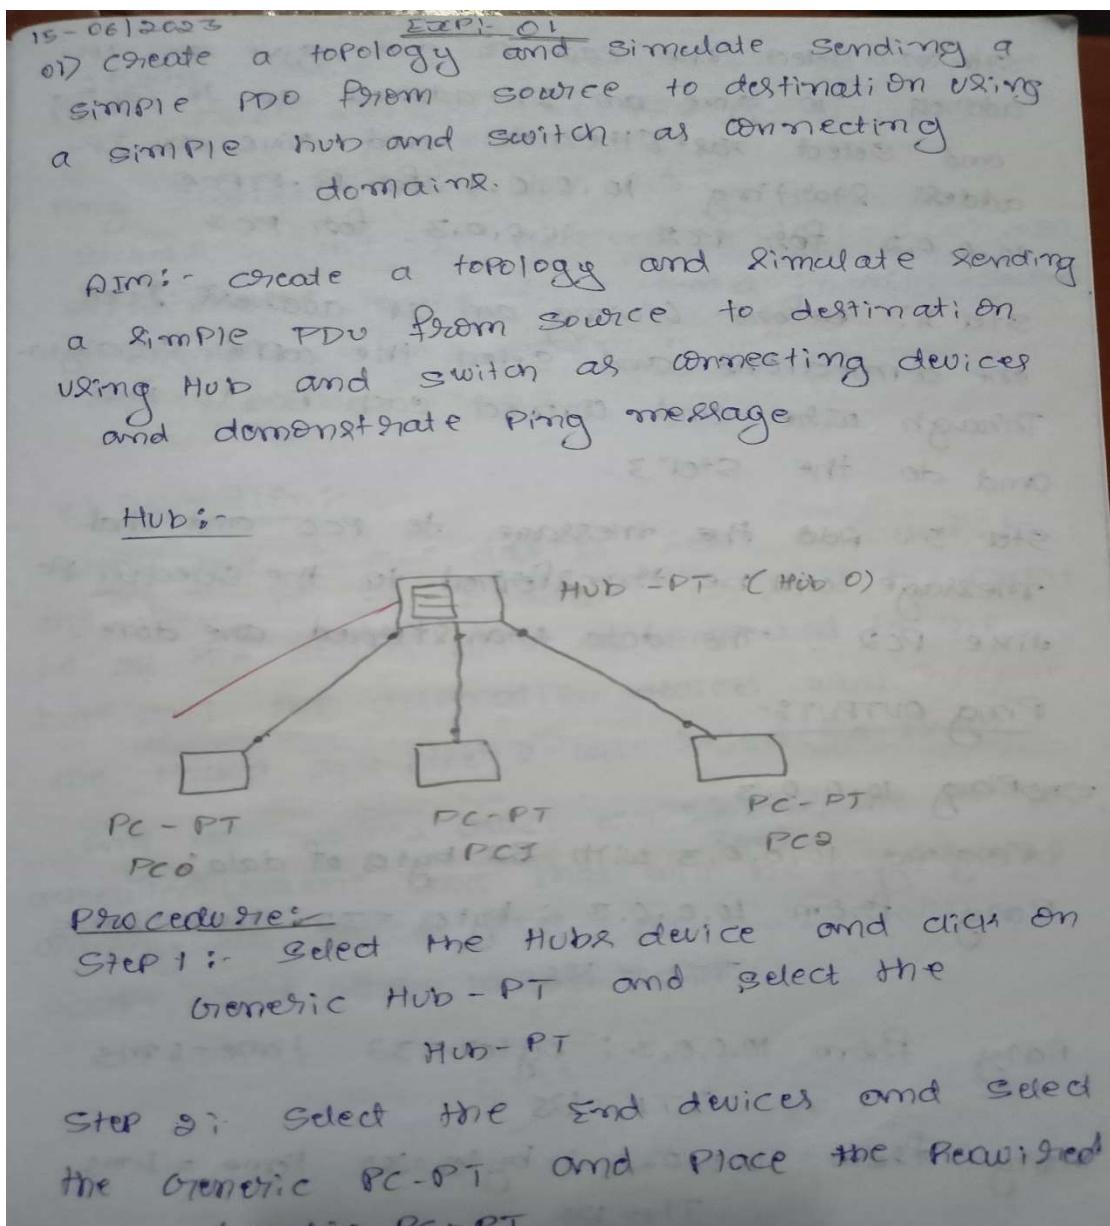 15-06/2023 EXP:- 01
01) create a topology and simulate sending a
simple PDU from source to destination using
a simple hub and switch as connecting
domains.
AIM:- create a topology and simulate sending
a simple PDU from source to destination
using Hub and switch as connecting devices
and demonstrate ping message
Hub:-
HUB-PT (Hub 0)
PC-PT
PC0
PC-PT
PC1
PC-PT
PC2
Procedure:-
Step 1:- Select the Hubs device and click on
Generic Hub-PT and select the
Hub-PT
Step 2: Select the End devices and select
the Generic PC-PT and Place the Required
PC-PT